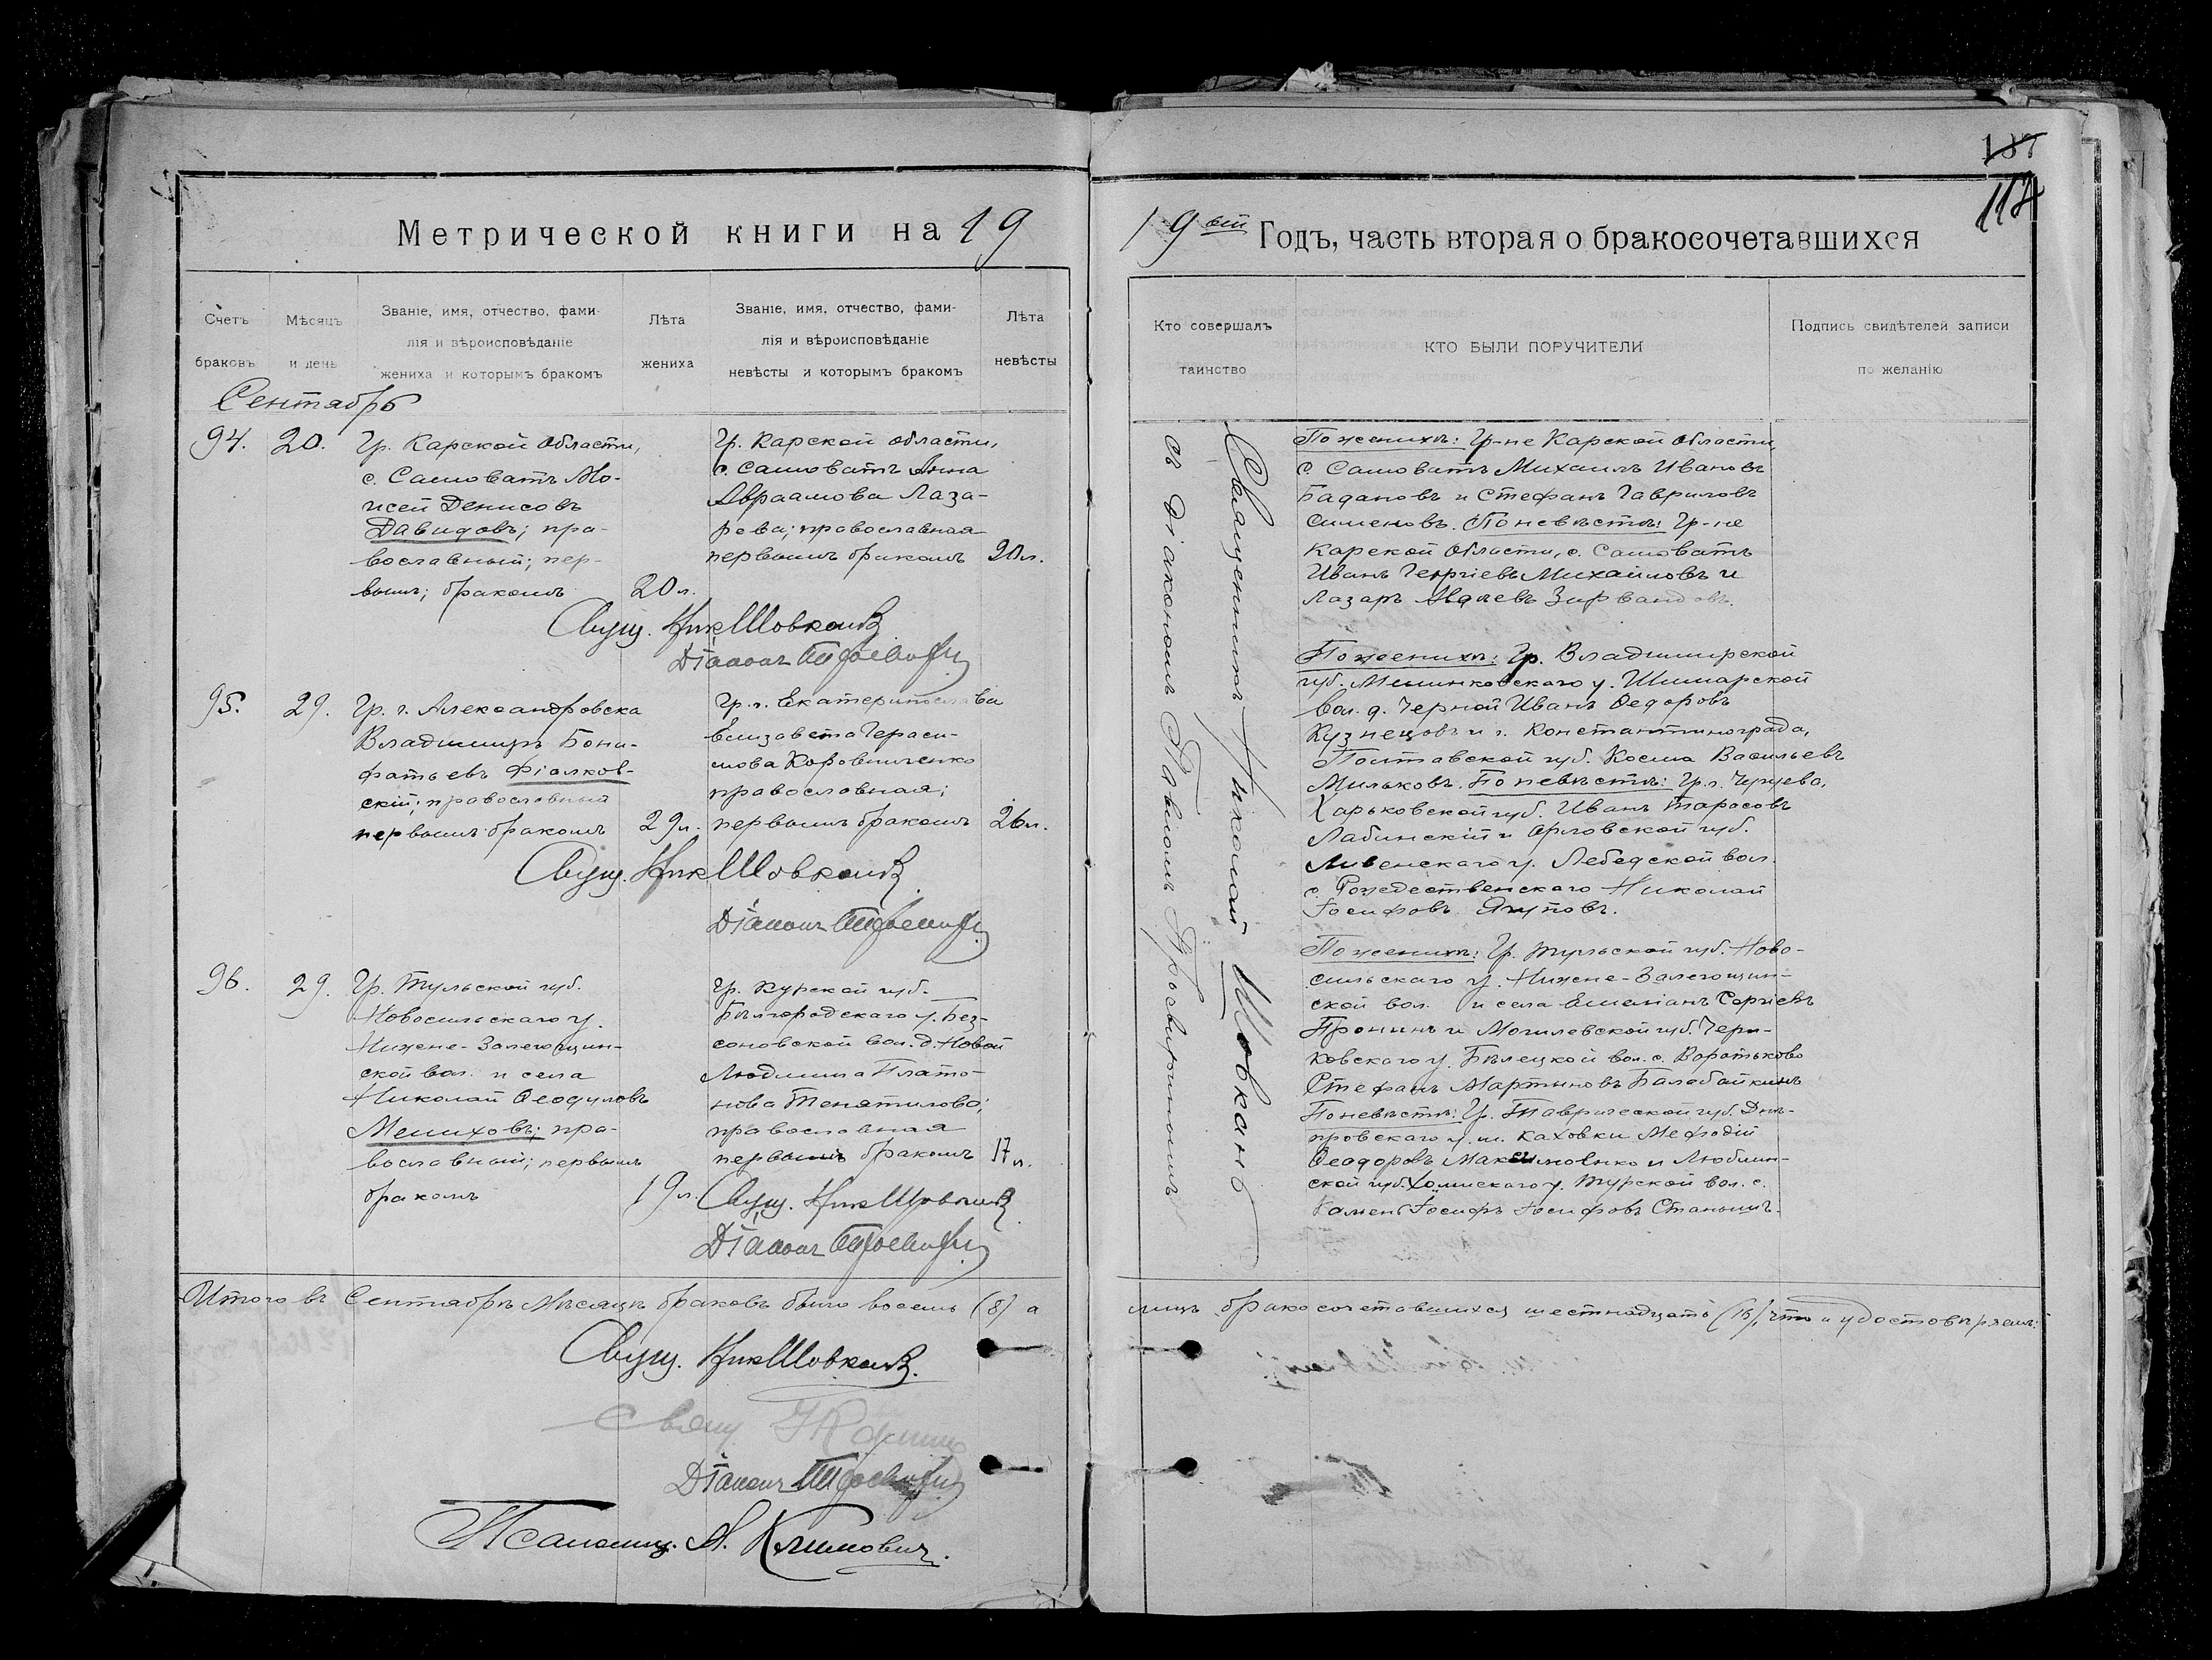 137
112
Метрической книги на 19
19ый Годъ, часть вторая о бракосочетавшихся
Счетъ браковъ
Мѣсяцъ и день
Званіе, имя, отчество, фами-
лія и вѣроисповѣданіе
жениха и которымъ бракомъ
Лѣта жениха
Званіе, имя, отчество, фами-
лія и вѣроисповѣданіе
невѣсты и которымъ бракомъ
Лѣта невѣсты
Кто совершалъ таинство
КТО БЫЛИ ПОРУЧИТЕЛИ
Подпись свидѣтелей записи
по желанію
Сентябрь
94. 20.
Гр. Карской Области,
с. Самоватъ Мо-
исей Денисовъ
Давидовъ; пра-
вославный; пер-
вымъ; бракомъ
20 л.
Гр. Карской области,
с. Самоватъ Анна
Авраамова Лаза-
рева; православная
первымъ бракомъ
20 л.
Свящ. Ник Шовкань
Діаконъ
95. 29.
Гр. г. Александровска
Владимиръ Бони-
фатьевъ Фіалков-
скій; православный
первымъ бракомъ
29 л.
Гр. г. Екатеринослава
Елизавета Гераси-
мова Коровниченко
православная;
первымъ бракомъ
26 л.
Свящ. Ник Шовкань
Діаконъ
96. 29.
Гр. Тульской губ.
Новосильскаго у.
Нижне-Залегощин-
ской вол. и села
Николай Ѳеодуловъ
Мелиховъ; пра-
вославный; первымъ
бракомъ
19 л.
Гр. Курской губ.
Бѣлгородскаго у. Без-
соновской вол. д. Новой
Людмила Плато-
нова
православная
первымъ бракомъ
17 л.
Свящ. Ник Шовкань
Діаконъ
Священникъ Николай Шовкань
съ діакономъ Павломъ
По женихѣ: Гр-не Карской Области,
с. Самоватъ Михаилъ Ивановъ
Бадановъ и Стефанъ Гавриловъ
Симоновъ. По невѣстѣ: Гр-не
Карской Области, с. Самоватъ
Иванъ Георгіевъ Михаиловъ и
Лазарь
По женихѣ: Гр. Владимирской
губ. Меленковскаго у.
вол. д. Черной Иванъ Ѳедоровъ
Кузнецовъ и г. Константинограда,
Полтавской губ. Косма Васильевъ
Мильковъ. По невѣстѣ: Гр. г. Чугуева,
Харьковской губ. Иванъ Тарасовъ
Лабинскій и Орловской губ.
Ливенскаго у. Лебедской вол.
с. Рождественскаго Николай
Іосифовъ Якуповъ.
По женихѣ: Гр. Тульской губ. Ново-
сильскаго у. Нижне-Залегощин-
ской вол. и села Емеліанъ Сергіевъ
Пронинъ и Могилевской губ. Чери-
ковскаго у. Бѣлецкой вол. с.
Стефанъ Мартыновъ Балабайкинъ
По невѣстѣ: Гр. Таврической губ. Днѣ-
провскаго у. м. Каховки Меѳодій
Ѳеодоровъ Максименко и Люблин-
ской губ. Холмскаго у. Турской вол. с.
Камень Іосифъ Іосифовъ
Итого въ Сентябрѣ мѣсяцѣ браковъ было восемь (8) а
лицъ бракосочетавшихся шестнадцать (16), что и удостовѣряемъ:
Свящ. Ник Шовкань.
Свящ.
Діаконъ
Псаломщ. А. Климовичъ.